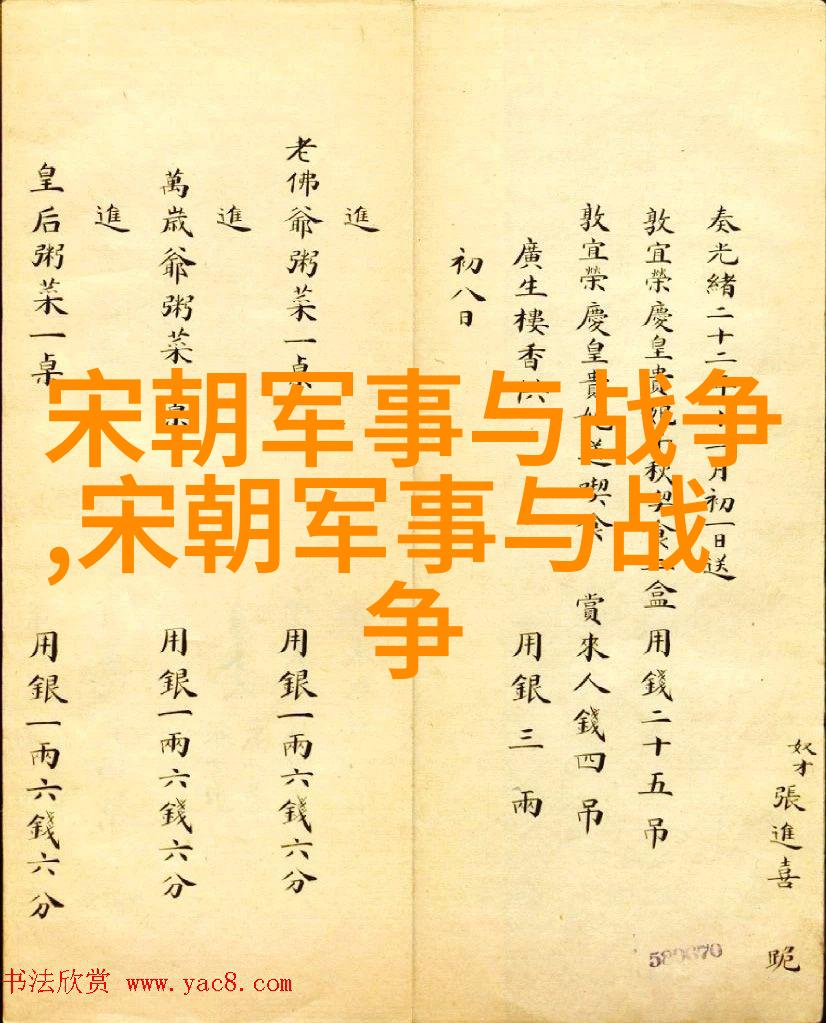 奴才張進喜 跪
奏光緒二十二年十一月初一日送
敦宜榮慶皇貴妃 食二盒用錢二十五吊
敦宜榮慶皇貴妃送喫食 賞來人錢四吊
廣生樓香供 用銀三兩
初八日
進
老佛爺粥菜一桌 用銀一兩六錢六分
進
萬歲爺粥菜一桌 用銀一兩六錢六分
進
皇后粥菜一桌 用銀一兩六錢六分
宋朝军事与战争
,宋朝军事与战
争
书法欣赏 www.yac8.com